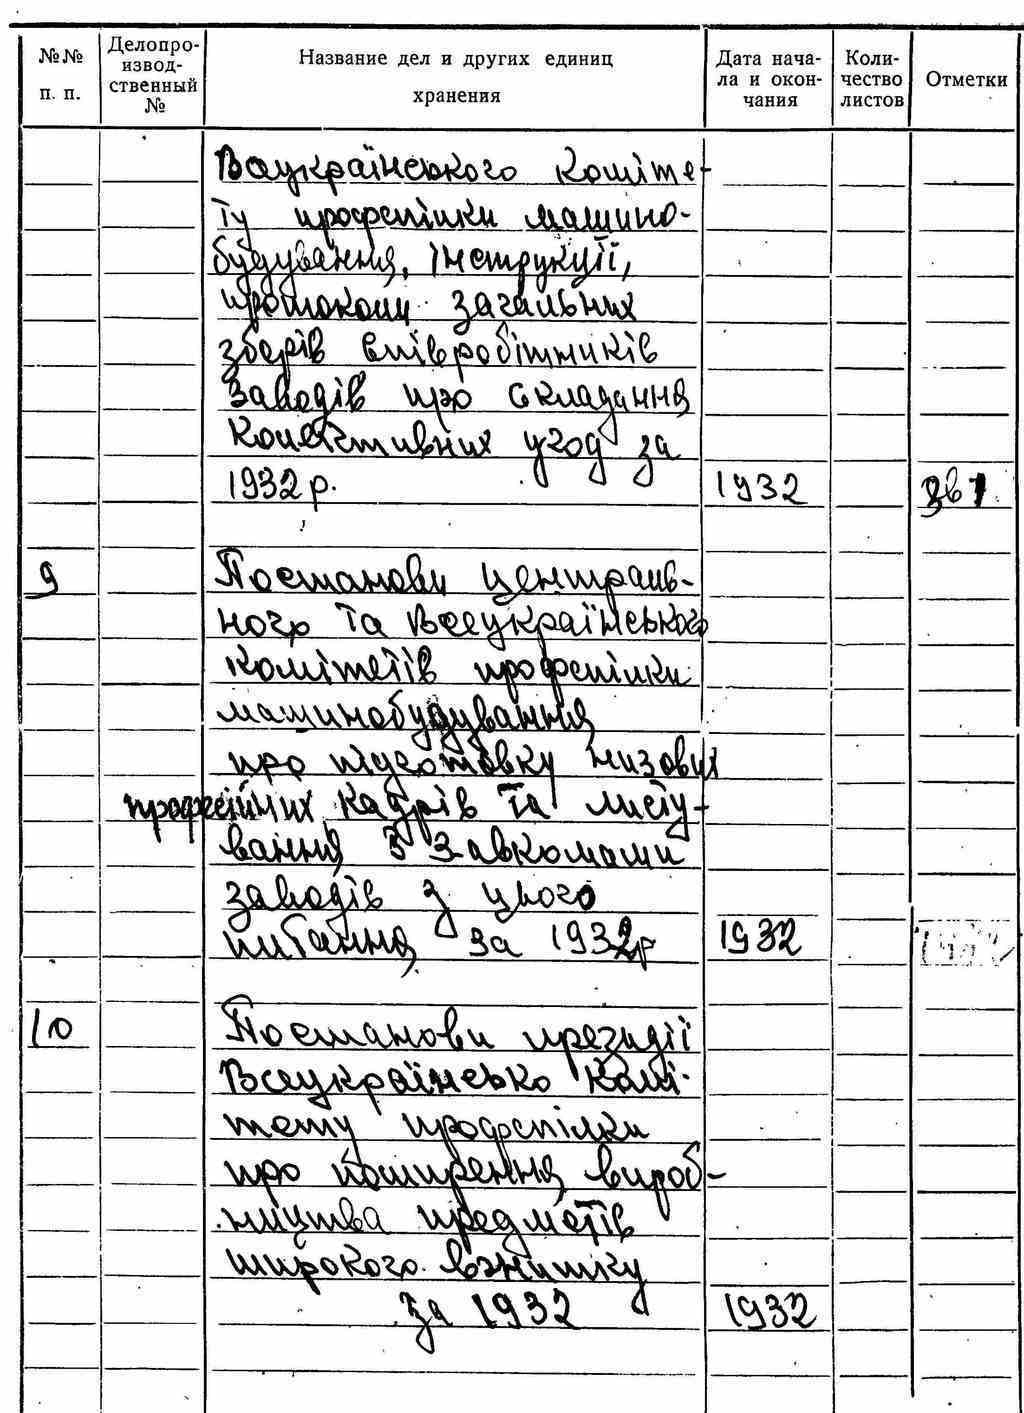 №№ п. п.
Делопро-извод-ственный №
Название дел и других единиц хранения
Дата нача-ла и окон-чания
Коли-чество листов
Отметки
Всеукраїнського коміте-
ту профспілки машино-
будування, інструкції,
протоколи загальних
зборів співробітників
заводів про складання
колективних угод за
1932 р. 1932
9 Постанови централь-
ного та Всеукраїнського
комітетів профспілки
машинобудування
про підготовку низових
профспілкових кадрів та листу-
вання з завкомами
заводів з цього
питання за 1932 р 1932
10 Постанови президії
Всеукраїнсько комі-
тету профспілки
про поширення вироб-
ництва предметів
широкого вжитку
за 1932 1932